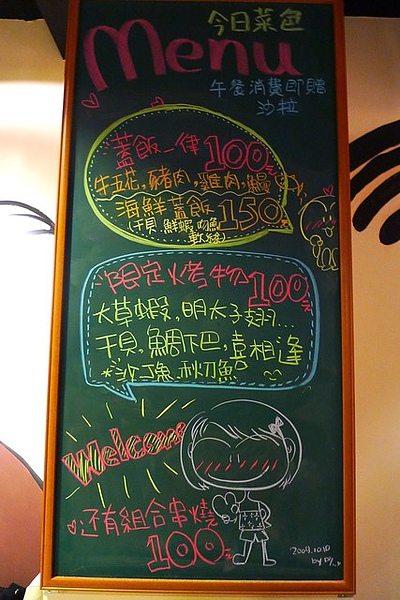 今日菜色
Menu
午餐消費即贈
沙拉
蓋飯一律100元
牛五花,豬肉,雞肉,鰻
海鮮蓋飯150元
(干貝,鮮蝦,
軟絲)
限定火烤物100元
大草蝦,明太子翅...
干貝,鯛下巴,喜相逢
*沙丁魚,秋刀魚
Welcome
還有組合串燒
100元
2009.10.10
by